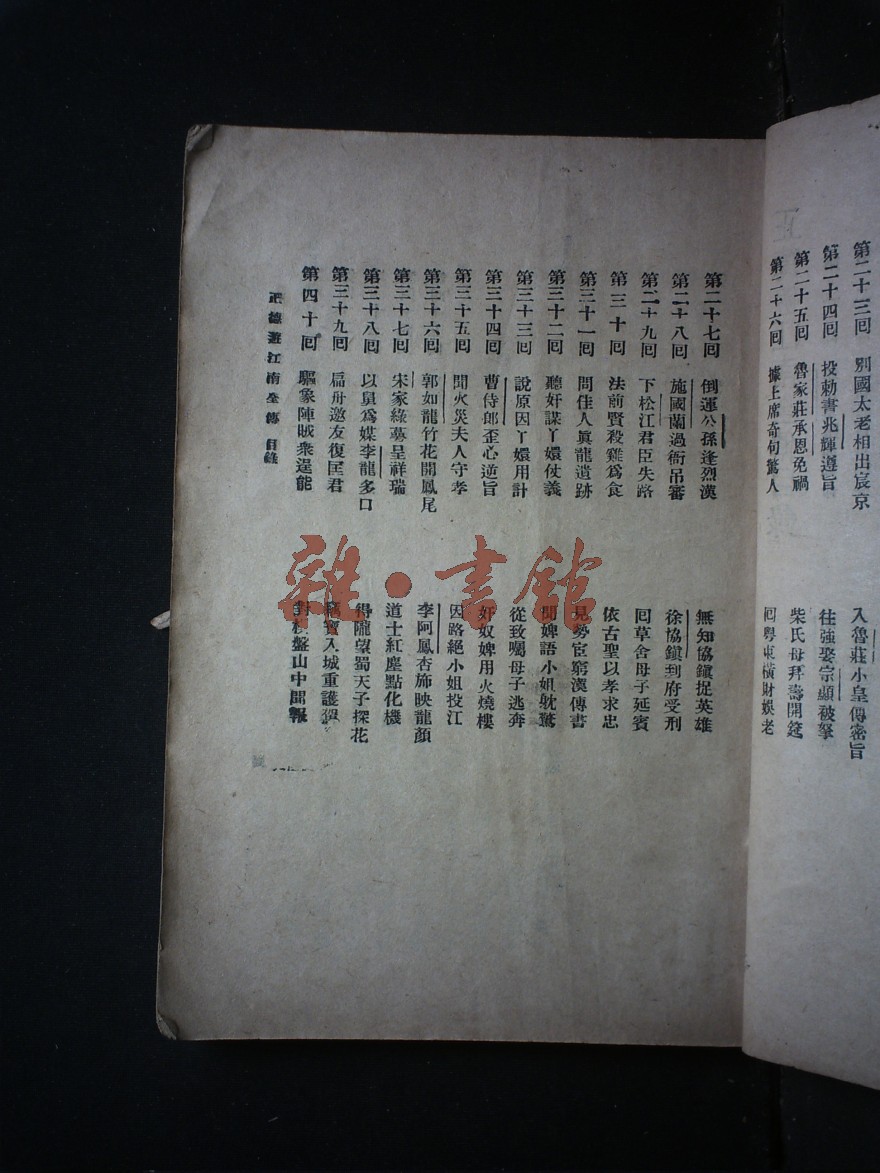 第二十三回 別國太老相出宸京 入魯莊小皇傳密旨
第二十四回 投勅書兆輝遵旨 往強娶宗顯被拏
第二十五回 魯家莊承恩免禍 柴氏母拜壽開筵
第二十六回 據上席奇句驚人 回粵東橫財娛老
第二十七回 倒運公孫逢烈漢 無知協鎮捉英雄
第二十八回 施國蘭過衙吊審 徐協鎮到府受刑
第二十九回 下松江君臣失路 回草舍母子延賓
第三十回 法前賢殺雞爲食 依古聖以孝求忠
第三十一回 問佳人眞龍遺跡 見勢宦窮漢傳書
第三十二回 聽奸謀丫嬛仗義 聞婢語小姐躭驚
第三十三回 說原因丫嬛用計 從致囑母子逃奔
第三十四回 曹侍郎歪心逆旨 奸奴婢用火燒樓
第三十五回 聞火災夫人守孝 因路絕小姐投江
第三十六回 郭如龍竹花開鳳尾 李阿鳳杏旆映龍顏
第三十七回 宋家綠藜呈祥瑞 道士紅塵點化機
第三十八回 以鼠爲媒李龍多口 得隴望蜀天子探花
第三十九回 扁舟邀友復匡君 寶入城重護駕
第四十回 驅象陣賊衆逞能 對棋盤山中聞報
正德遊江南全傳 目錄
雜·書館